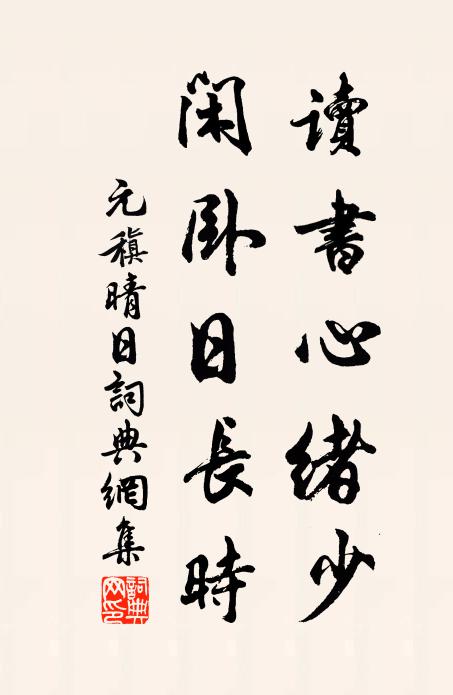 讀書心緒少
閑卧日長時
元稹晴日詞典網集
詞典网印